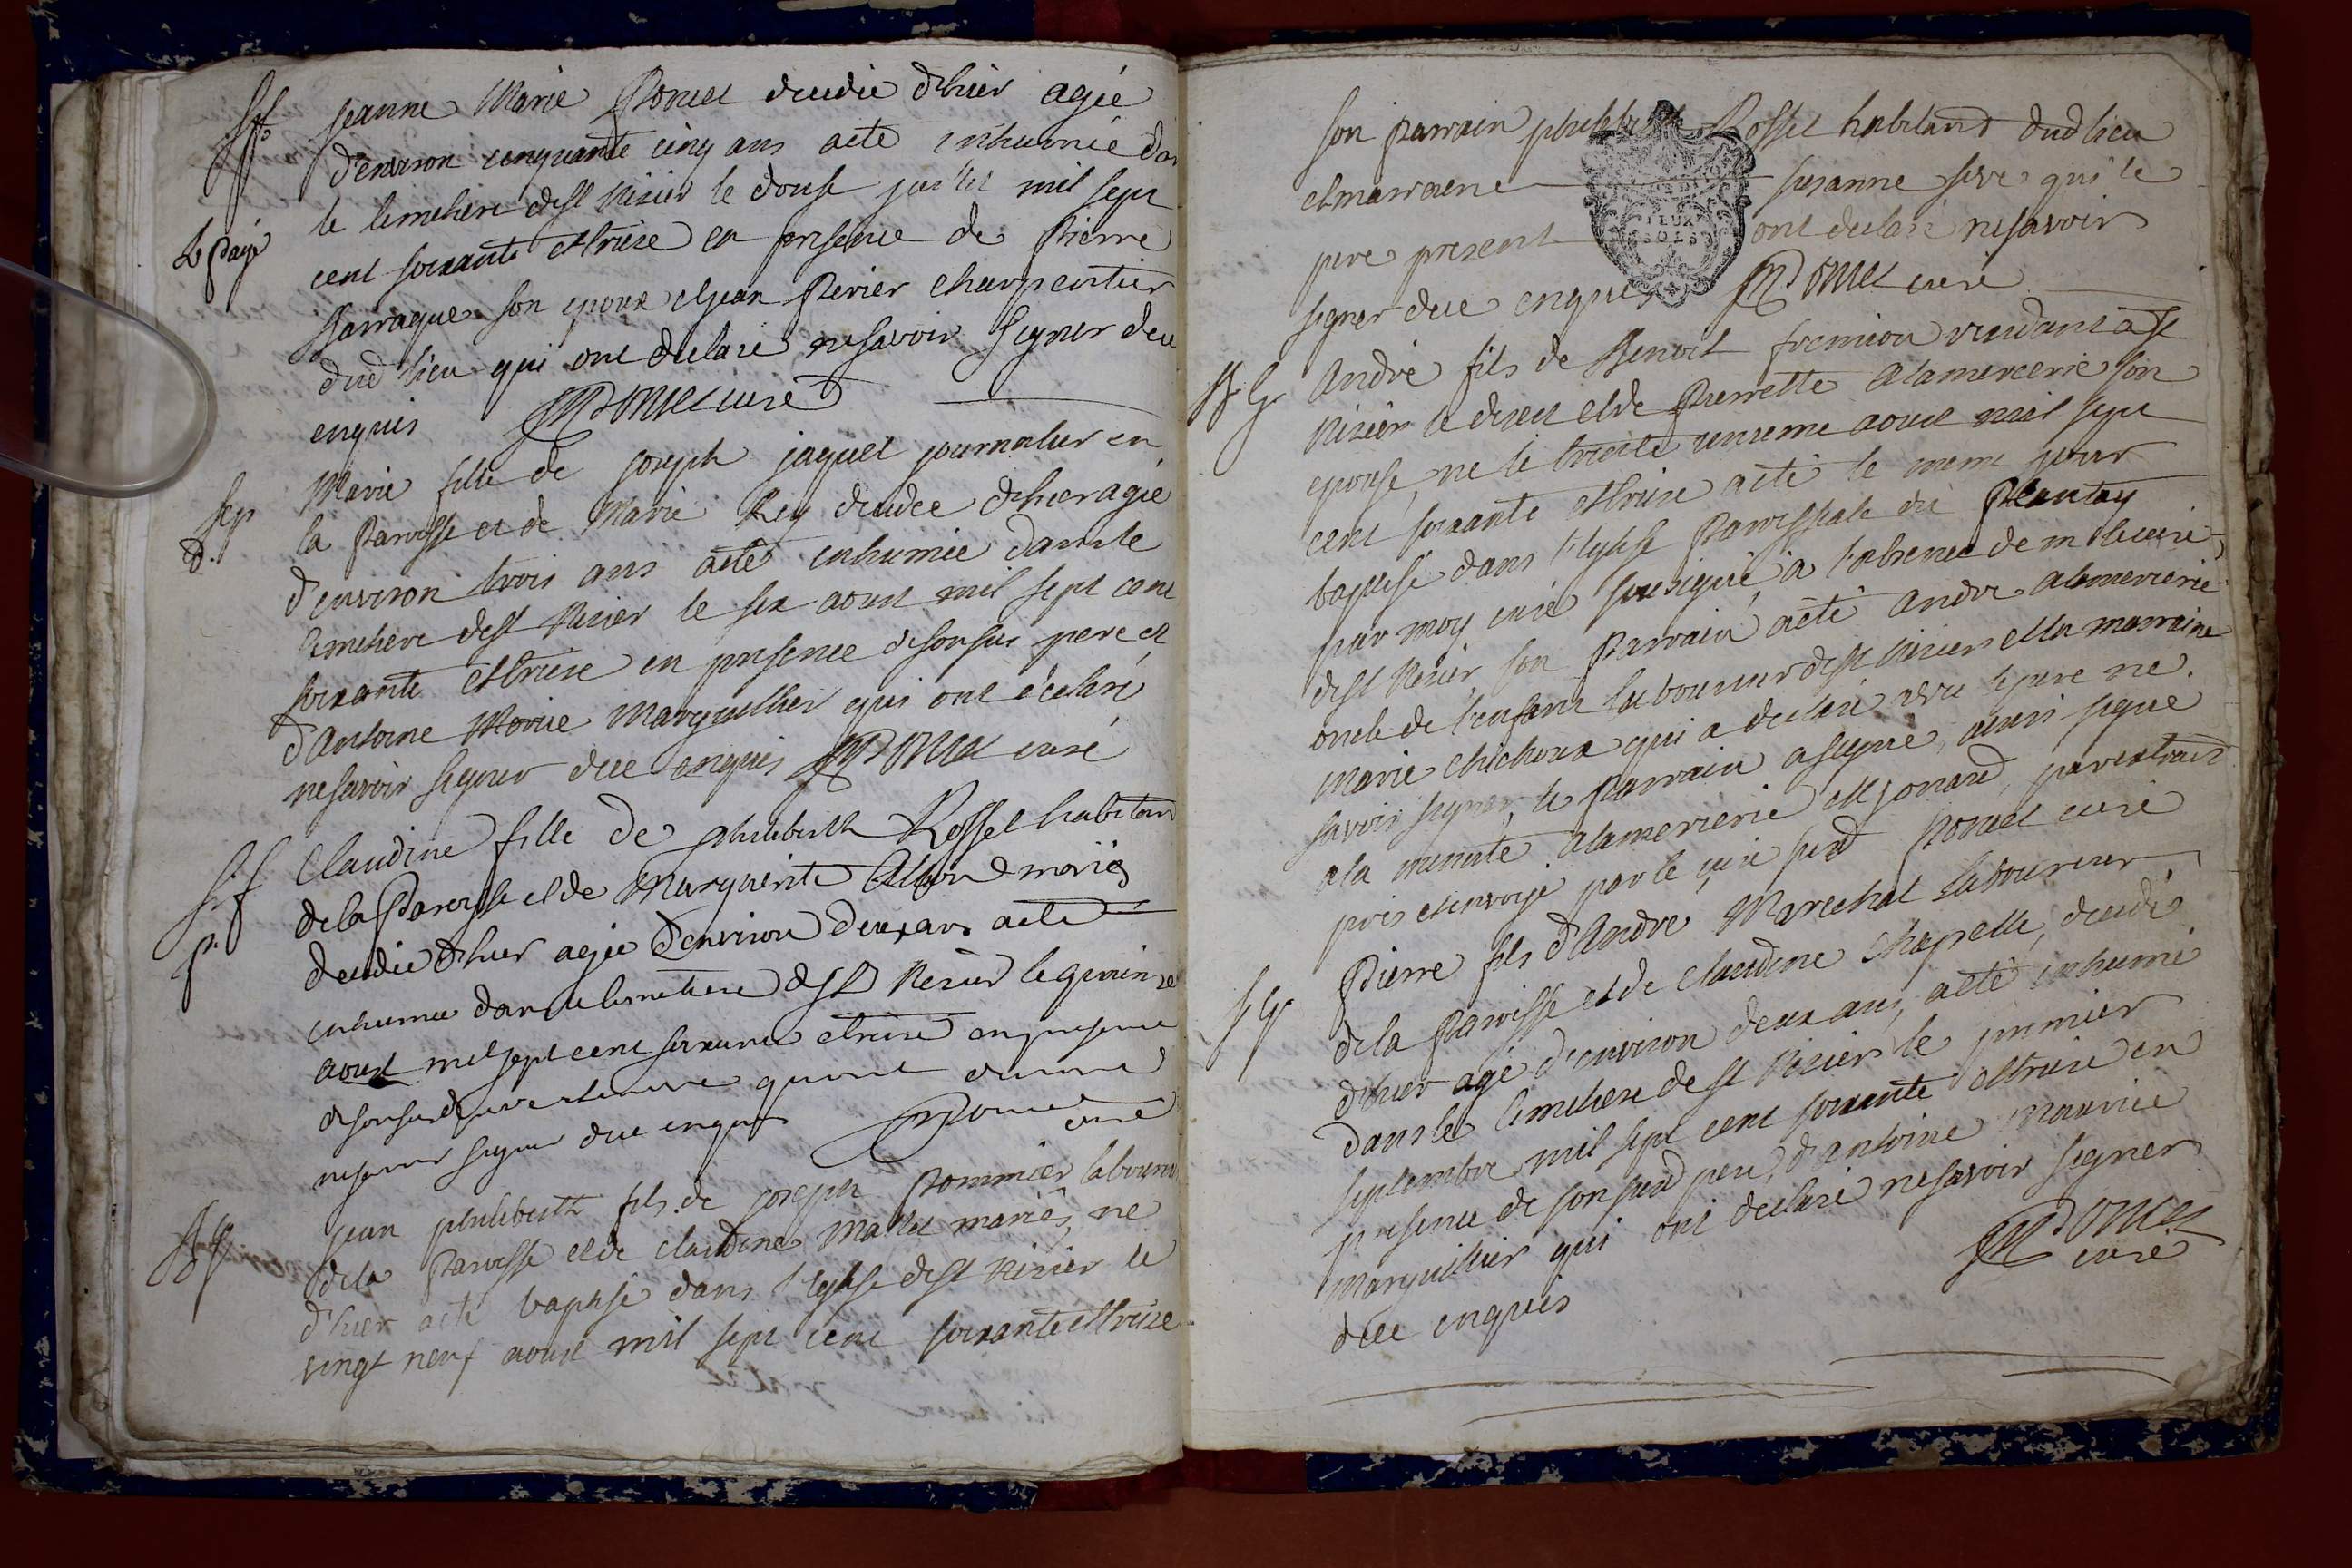 Jeanne Marie Poncet deedée d'hier agée
d'environ cinquante cinq ans aeté inhumée dan
le cimetiere de St Nisier le douse juillet mil sept
cent soixante et treize en presence de Pierre
Barraque son epoux et jean Perier charpentier
dud lieu qui ont declaré ne savoir signer de ce
enquis Poncet curé
Marie fille de joseph jaquet journalier en
la Paroisse et de Marie Rey decedee d'hier agée
d'environ trois ans aeté inhumée dans le
cimetiere de St Nisier le six aoust mil sept cent
soixante et treize en presence de son sus pere et
d'Antoine Morice Marguillier qui ont declaré
ne savoir signer de ce enquis Poncet curé
Claudine fille de philiberth Rossel habitan
de la Paroisse et de marguerite mariés
decedée d'hier agée d'environ deux ans aeté
inhumée dans le cimetiere de St Nisier le quinze
aoust mil sept cent soixante et treize en presence
de son sud pere
ne savoir signer de ce enquis Poncet
curé
jean philiberth fils de joseph Pommier laboureur
de la Paroisse et de claudine Mallet mariés, ne
d'hier aeté baptisé dans l'eglise de St Nisier le
vingt neuf aoust mil sept cent soixante et treize
son Parrain philiberth Rossel habitant dud lieu
et marraine susanne qui le
pere present ont declaré ne savoir
signer de ce enquis Poncet curé
DEUX
SOLS
André fils de Benoit fremion residant a St
Nisier le desert et de Pierrette Alamercerie son
epouse, ne le trente unieme aoust mil sept
cent soixante et treize aeté le meme jour
baptisé dans l'eglise Paroissiale du Plantay
par moy curé soussigné, a l'absence de mr le curé
de St Nisier son Parrain aeté André alamercerie
oncle de l'enfant laboureur de St Nisier et la marraine
Marie chichoux qui a declaré avec le pere ne
savoir signer, le Parrain a signé, ainsi signé
a la minute Alamercerie et jonard, par extrait
pris et envoyé par le curé susd Poncet curé
Pierre fils d'André Marechal laboureur
de la Paroisse et de claudine chapelle, decedé
d'hier agé d'environ deux ans, aeté inhumé
dans le cimetiere de St Nisier le premier
septembre mil sept cent soixante et treize en
presence de son susd pere, d'antoine Maurice
Marguillier qui ont declaré ne savoir signer
de ce enquis
Poncet
curé